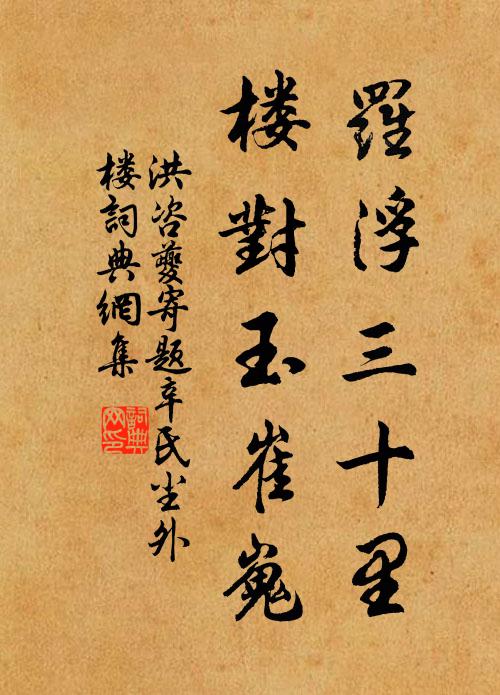 羅浮三十里
楼對玉崔嵬
洪咨夔寄題辛氏尘外
楼詞典網集
詞典
网印